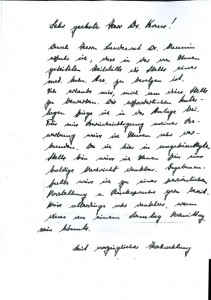 Sehr geehrter Herr Dr. Kraus!
Durch Herrn Landesrat Dr.
erfuhr ich, dass in der von Ihnen
geleiteten die Stelle eines
zu besetzen ist.
Ich erlaube mir, mich um diese Stelle
zu bewerben. Die erforderlichen Unter-
lagen füge ich in der Anlage bei.
Für eine Berücksichtigung meiner Be-
werbung wäre ich Ihnen sehr ver-
bunden. Da ich hier in ungekündigter
Stelle bin wäre ich Ihnen für eine
baldige Nachricht dankbar. Gegebenen-
falls wäre ich zu einer persönlichen
Vorstellung u. Rücksprache gern bereit.
Wäre allerdings sehr dankbar, wenn
diese an einem Samstag Vormittag
sein könnte.
Mit vorzüglicher Hochachtung